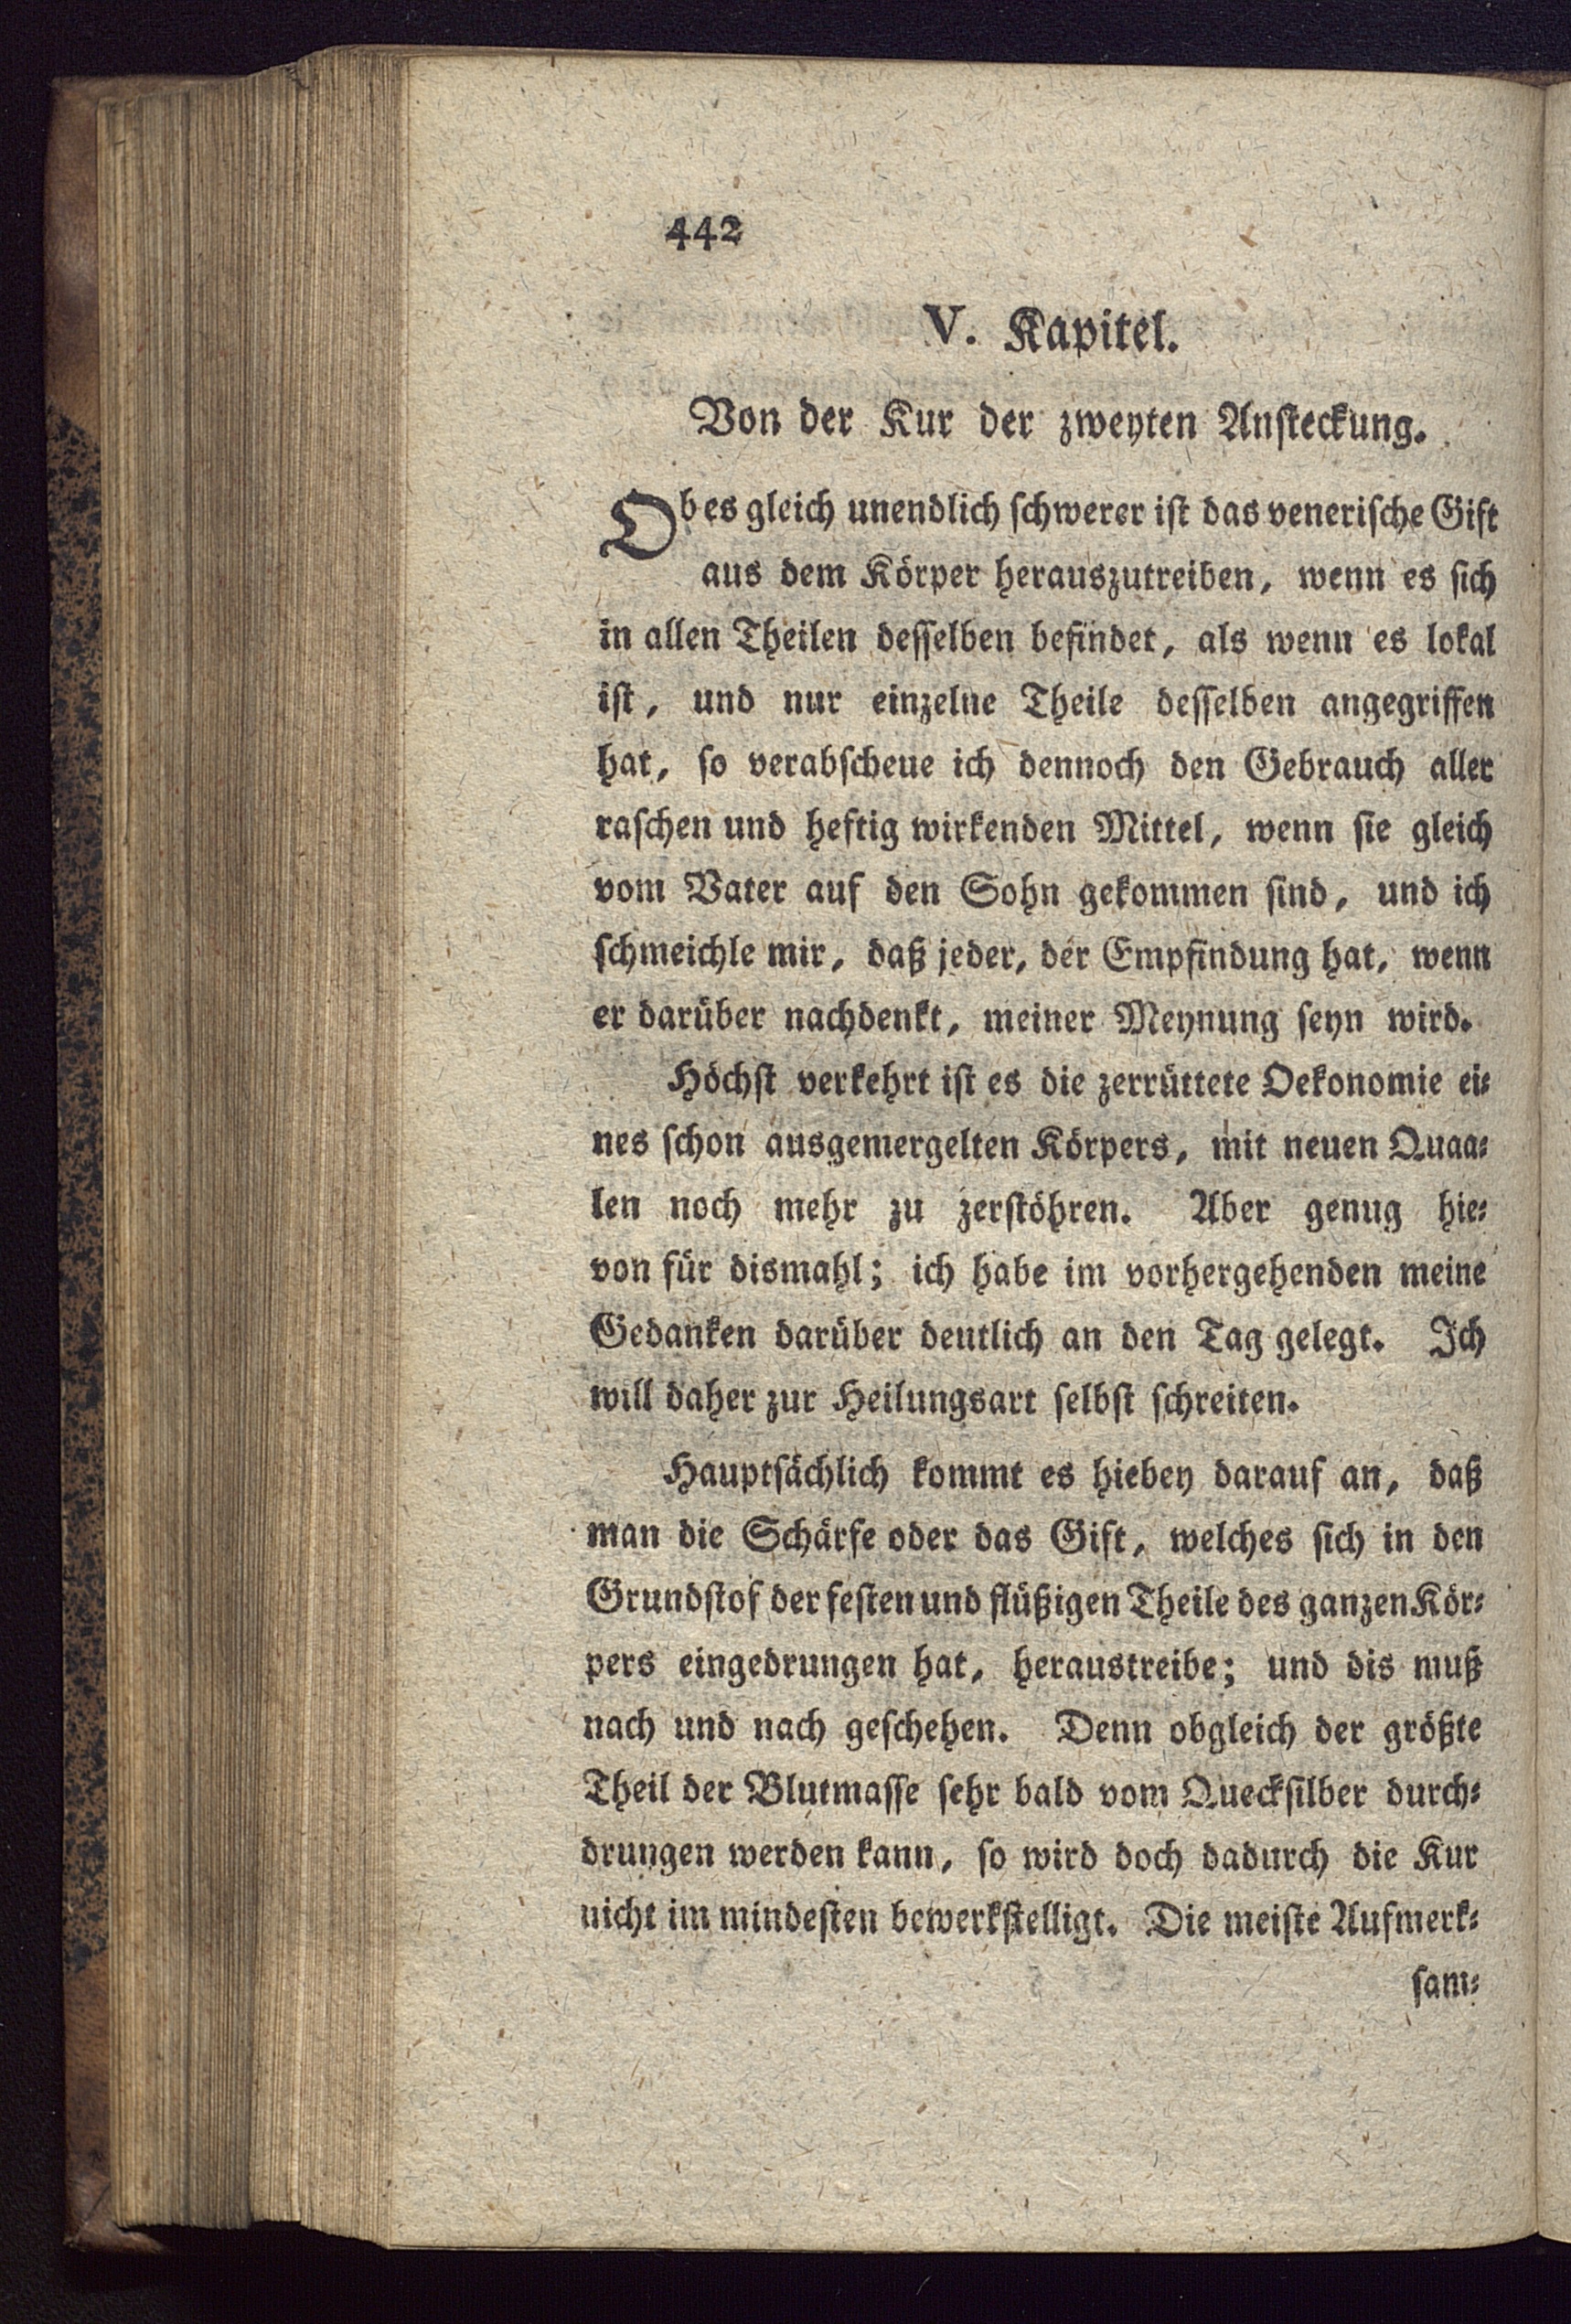 442
V. Kapitel.
Von der Kur der zweyten Ansteckung.
Ob es gleich unendlich schwerer ist das venerische Gift
aus dem Körper herauszutreiben, wenn es sich
in allen Theilen desselben befindet, als wenn es lokal
ist, und nur einzelne Theile desselben angegriffen
hat, so verabscheue ich dennoch den Gebrauch aller
raschen und heftig wirkenden Mittel, wenn sie gleich
vom Vater auf den Sohn gekommen sind, und ich
schmeichle mir, daß jeder, der Empfindung hat, wenn
er darüber nachdenkt, meiner Meynung seyn wird.
Höchst verkehrt ist es die zerrüttete Oekonomie ei-
nes schon ausgemergelten Körpers, mit neuen Quaa-
len noch mehr zu zerstöhren. Aber genug hie-
von für dismahl; ich habe im vorhergehenden meine
Gedanken darüber deutlich an den Tag gelegt. Ich
will daher zur Heilungsart selbst schreiten.
Hauptsächlich kommt es hiebey darauf an, daß
man die Schärfe oder das Gift, welches sich in den
Grundstof der festen und flüßigen Theile des ganzen Kör-
pers eingedrungen hat, heraustreibe; und dis muß
nach und nach geschehen. Denn obgleich der größte
Theil der Blutmasse sehr bald vom Quecksilber durch-
drungen werden kann, so wird doch dadurch die Kur
nicht im mindesten bewerkstelligt. Die meiste Aufmerk-
sam-